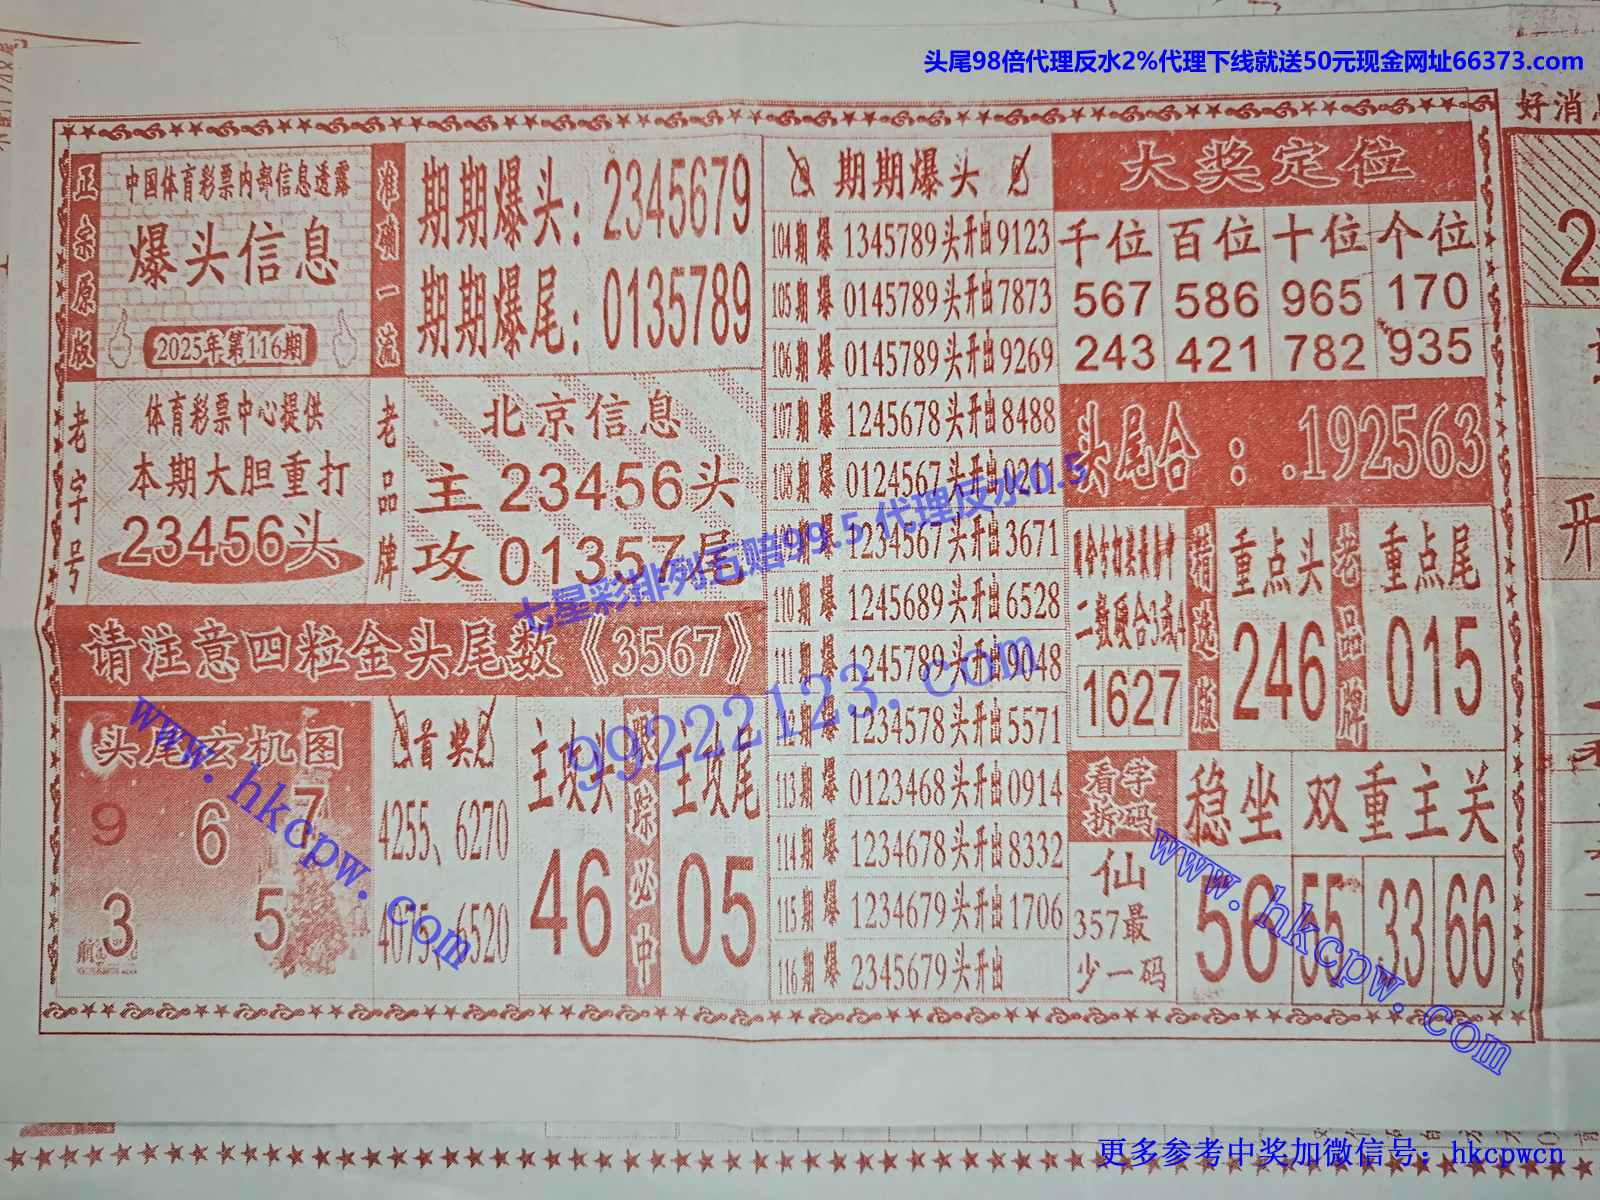 头尾98倍代理反水2%代理下线就送50元现金网址66373.com
好消
正宗原版
中国体育彩票内部信息透露
爆头信息
2025年第116期
准确一流
期期爆头：2345679
期期爆尾：0135789
老字号
体育彩票中心提供
本期大胆重打
23456头
老品牌
北京信息
主23456头
攻01357尾
请注意四粒金头尾数《3567》
头尾玄机图
9
6
7
3
5
首奖
4255、6270
4075、6520
主攻头
46
跟踪必中
主攻尾
05
期期爆头
104期 爆 1345789头开出9123
105期 爆 0145789头开出7873
106期 爆 0145789头开出9269
107期 爆 1245678头开出8488
108期 爆 0124567头开出0211
爆 1234567头开出3671
110期 爆 1245689头开出6528
111期 爆 1245789头开出9048
112期 爆 1234578头开出5571
113期 爆 0123468头开出0914
114期 爆 1234678头开出8332
115期 爆 1234679头开出1706
116期 爆 2345679头开出
大奖定位
千位 百位 十位 个位
567 586 965 170
243 421 782 935
头尾合：.192563
二数硬合3或4
1627
精选版
重点头
246
老品牌
重点尾
015
看字拆码
仙
357最
少一码
稳坐
56
双重主关
55 33 66
开
七星彩排列五赔99.5 代理反水0.5
99222123.com
www.hkcpw.com
www.hkcpw.com
更多参考中奖加微信号：hkcpwcn